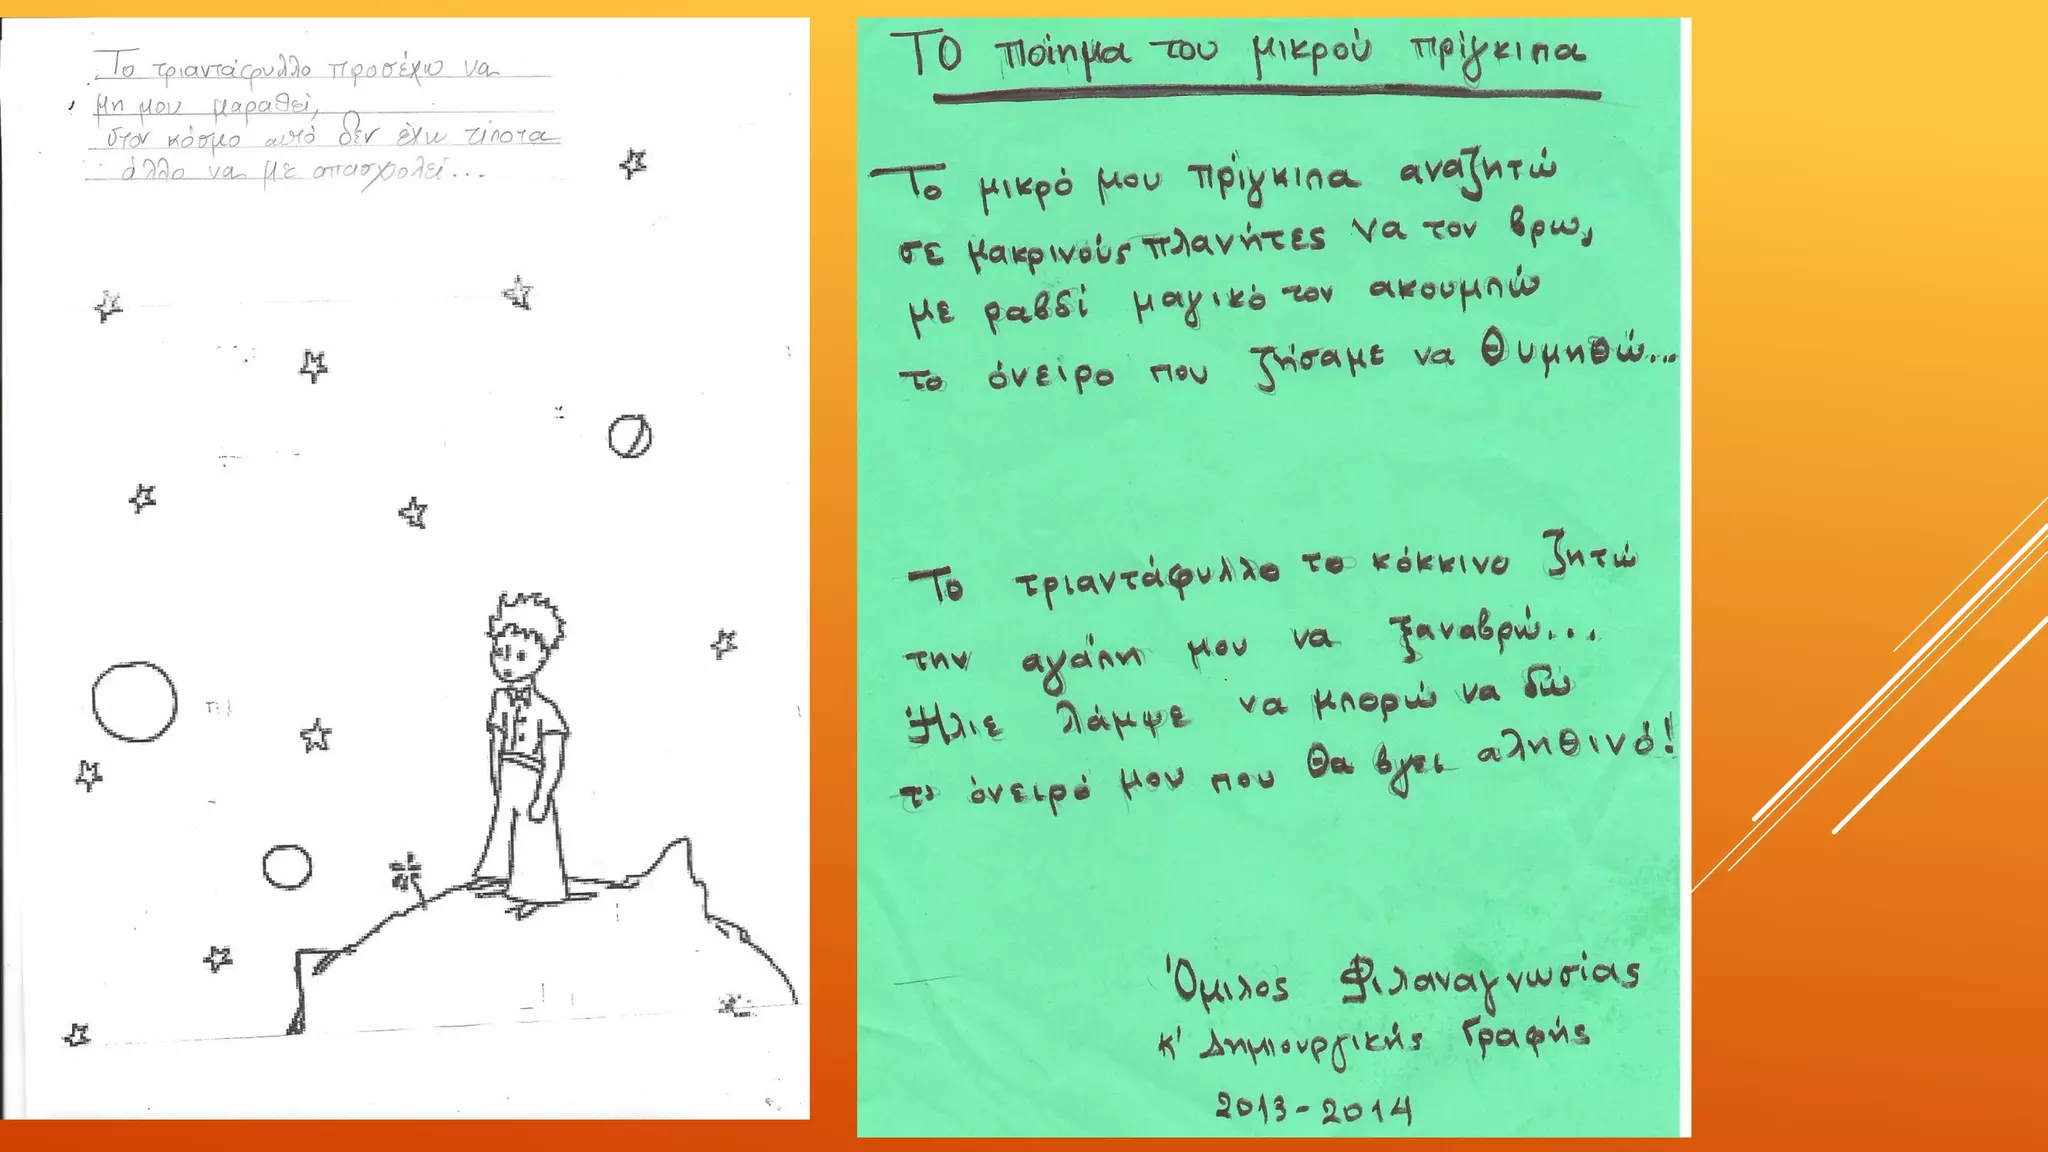 Το τριαντάφυλλο προσέχω να
μη μου μαραθεί,
στον κόσμο αυτό δεν έχω τίποτα
άλλο να με απασχολεί...
ΤΟ ποίημα του μικρού πρίγκιπα
Το μικρό μου πρίγκιπα αναζητώ
σε μακρινούς πλανήτες να τον βρω,
με ραβδί μαγικό τον ακουμπώ
το όνειρο που ζήσαμε να θυμηθώ...
Το τριαντάφυλλο το κόκκινο ζητώ
την αγάπη μου να ξαναβρώ...
Ήλιε λάμψε να μπορώ να δω
το όνειρό μου που θα βγει αληθινό!
Όμιλος Φιλαναγνωσίας
κ' Δημιουργικής Γραφής
2013-2014